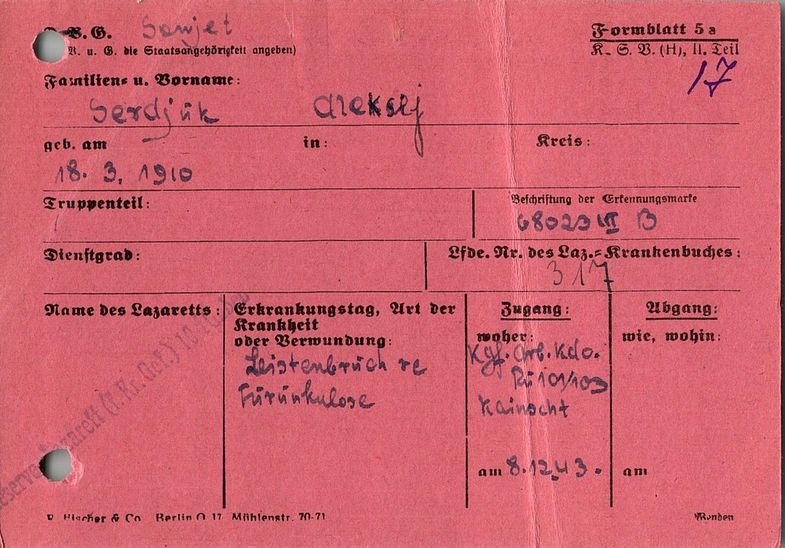 B. G. Sowjet
u. G. die Staatsangehörigkeit angeben)
Formblatt 5a
K. S. V. (H), II. Teil
17
Familien= u. Vorname:
Serdjuk Aleksej
geb. am in: Kreis:
18. 3. 1910
Truppenteil:
Beschriftung der Erkennungsmarke
68023 VI B
Dienstgrad:
Lfde. Nr. des Laz.=Krankenbuches:
317
Name des Lazaretts:
Erkrankungstag, Art der
Krankheit
oder Verwundung:
Leistenbruch re
Furunkulose
Zugang:
woher:
Kgf. Arb. Kdo.
Rü 101/103
Kainscht
am 8.12.43.
Abgang:
wie, wohin:
am
Fischer & Co. Berlin O 17 Mühlenstr. 70-71
Wenden